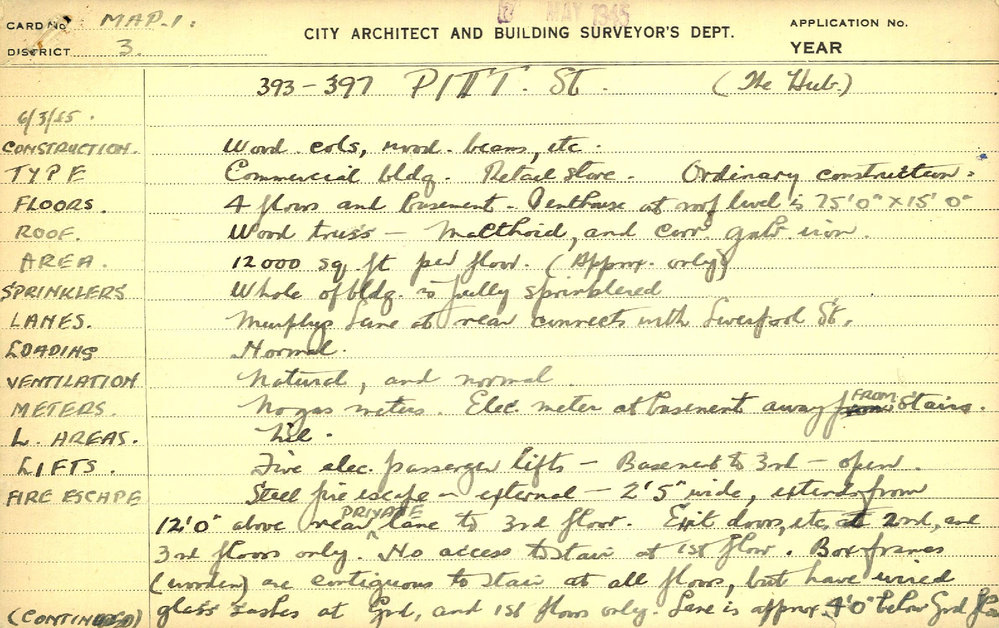 MAY 1945
CARD No MAP-1. CITY ARCHITECT AND BUILDING SURVEYOR'S DEPT. APPLICATION No.
DISTRICT 3. YEAR
393-397 PITT. St. (The Hub.)
6/3/45.
CONSTRUCTION. Wood cols, wood beams, etc.
TYPE Commercial bldg. Retail Store. Ordinary construction.
FLOORS. 4 floors and basement - Penthouse at roof level is 75'0" x 15'0"
ROOF. Wood truss - Malthoid, and corr. galv iron.
AREA. 12000 sq. ft per floor. (Approx. only)
SPRINKLERS Whole of bldg. is fully sprinklered
LANES. Murphys Lane at rear connects with Liverpool St.
LOADING Normal.
VENTILATION Natural, and normal.
METERS. No gas meters. Elec. meter at basement away FROM Stairs.
L. AREAS. Nil.
LIFTS. Five elec. passenger lifts - Basement to 3rd - open.
FIRE ESCAPE Steel fire escape - external - 2'5" wide, extends from
12'0" above rear PRIVATE lane to 3rd floor. Exit doors, etc, at 2nd, and
3rd floors only. No access to stair at 1st floor. Box frames
(wooden) are contiguous to stair at all floors, but have wired
(CONTINUED) glass sashes at Grd, and 1st floors only. Lane is approx. 4'0" below Grd floor